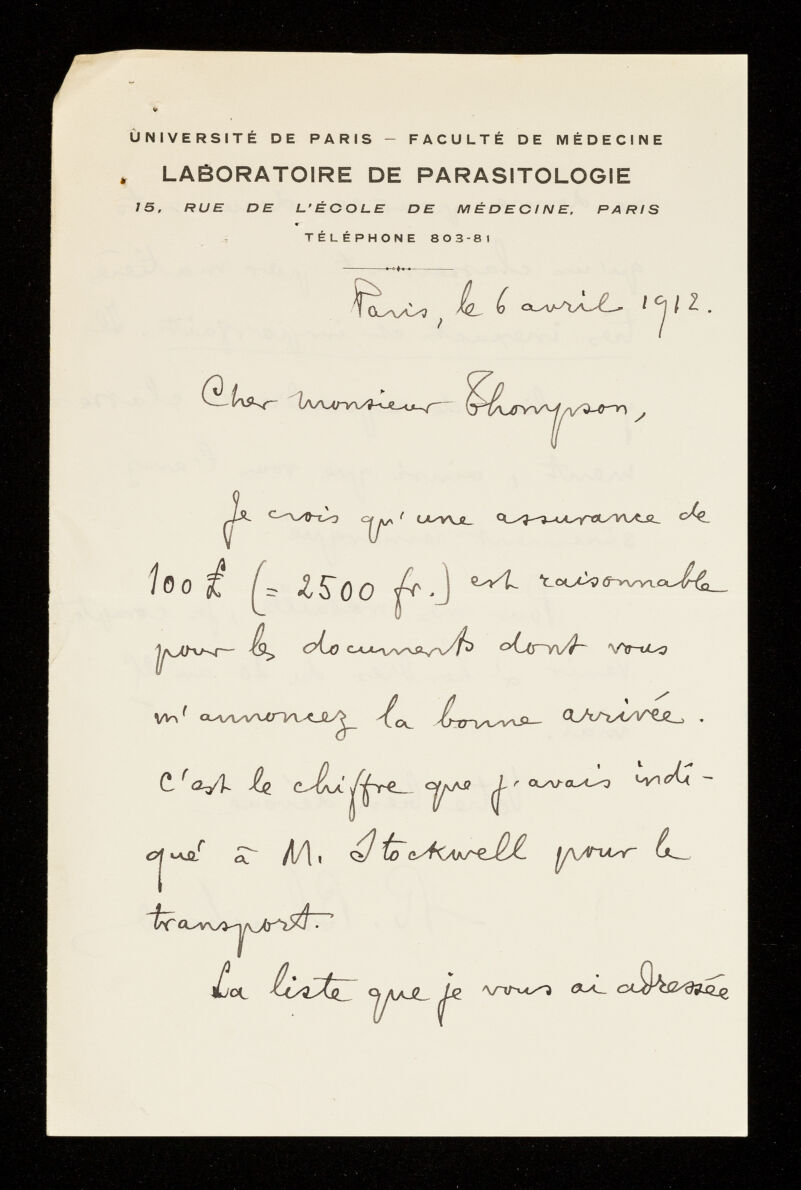 UNIVERSITÉ DE PARIS – FACULTÉ DE MÉDECINE
LABORATOIRE DE PARASITOLOGIE
15, RUE DE L'ÉCOLE DE MÉDECINE, PARIS
TÉLÉPHONE 803-81
Paris, le 6 avril 1912.
Cher monsieur Thompson,
Je crois qu'une assurance de
100 £ (= 2500 fr.) est raisonnable
pour les documents dont vous
m'annoncez la bonne arrivée.
C'est le chiffre que j'avais indi-
qué à M. Stockwell pour le
transport.
La liste que je vous ai adressée